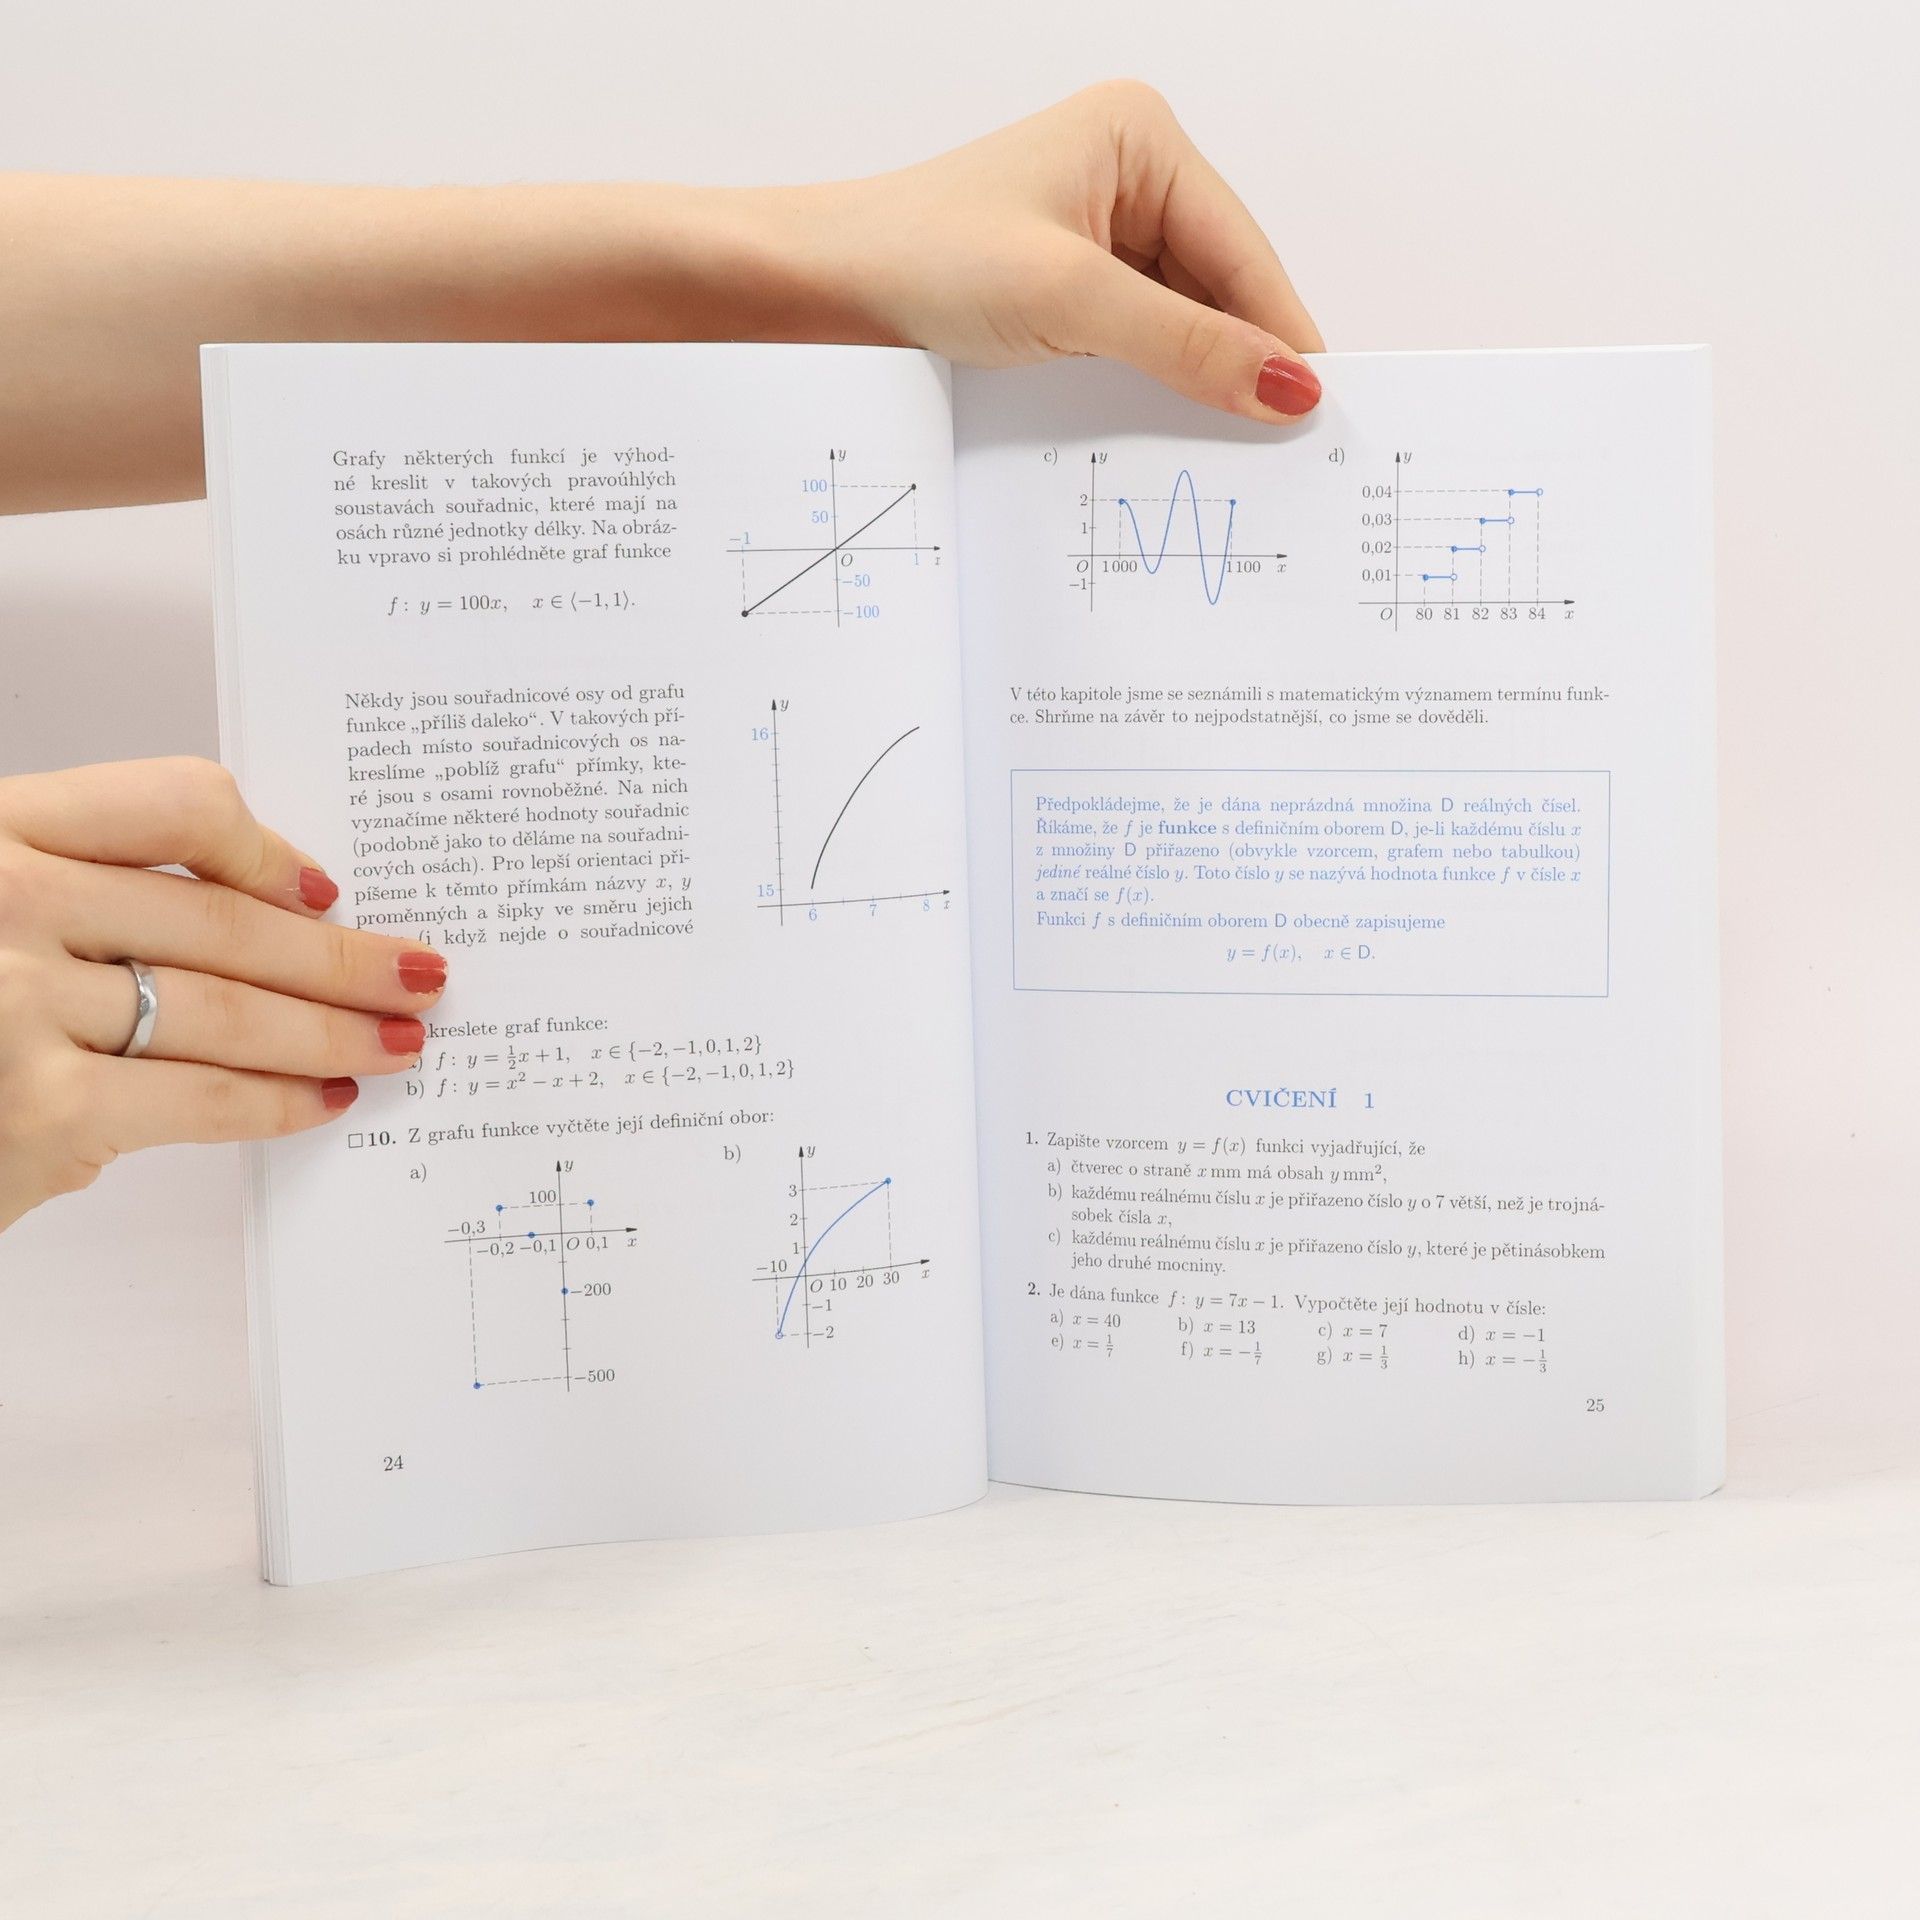 Grafy některých funkcí je výhod-
né kreslit v takových pravoúhlých
soustavách souřadnic, které mají na
osách různé jednotky délky. Na obráz-
ku vpravo si prohlédněte graf funkce
f : y = 100x, x ∈ ⟨−1, 1⟩.
y
100
50
−1
O
1
x
−50
−100
Někdy jsou souřadnicové osy od grafu
funkce „příliš daleko“. V takových pří-
padech místo souřadnicových os na-
kreslíme „poblíž grafu“ přímky, kte-
ré jsou s osami rovnoběžné. Na nich
vyznačíme některé hodnoty souřadnic
(podobně jako to děláme na souřadni-
cových osách). Pro lepší orientaci při-
píšeme k těmto přímkám názvy x, y
proměnných a šipky ve směru jejich
(i když nejde o souřadnicové
y
16
15
6 7 8 x
kreslete graf funkce:
) f : y = 1/2x + 1, x ∈ {−2, −1, 0, 1, 2}
b) f : y = x² − x + 2, x ∈ {−2, −1, 0, 1, 2}
□10. Z grafu funkce vyčtěte její definiční obor:
a)
y
100
−0,3
−0,2 −0,1 O 0,1 x
−200
−500
b)
y
3
2
1
−10
O 10 20 30 x
−1
−2
24
c)
y
2
1
O 1000 1100 x
−1
d)
y
0,04
0,03
0,02
0,01
O 80 81 82 83 84 x
V této kapitole jsme se seznámili s matematickým významem termínu funk-
ce. Shrňme na závěr to nejpodstatnější, co jsme se dověděli.
Předpokládejme, že je dána neprázdná množina D reálných čísel.
Říkáme, že f je funkce s definičním oborem D, je-li každému číslu x
z množiny D přiřazeno (obvykle vzorcem, grafem nebo tabulkou)
jediné reálné číslo y. Toto číslo y se nazývá hodnota funkce f v čísle x
a značí se f(x).
Funkci f s definičním oborem D obecně zapisujeme
y = f(x), x ∈ D.
CVIČENÍ 1
1. Zapište vzorcem y = f(x) funkci vyjadřující, že
a) čtverec o straně x mm má obsah y mm²,
b) každému reálnému číslu x je přiřazeno číslo y o 7 větší, než je trojná-
sobek čísla x,
c) každému reálnému číslu x je přiřazeno číslo y, které je pětinásobkem
jeho druhé mocniny.
2. Je dána funkce f : y = 7x − 1. Vypočtěte její hodnotu v čísle:
a) x = 40 b) x = 13 c) x = 7 d) x = −1
e) x = 1/7 f) x = −1/7 g) x = 1/3 h) x = −1/3
25